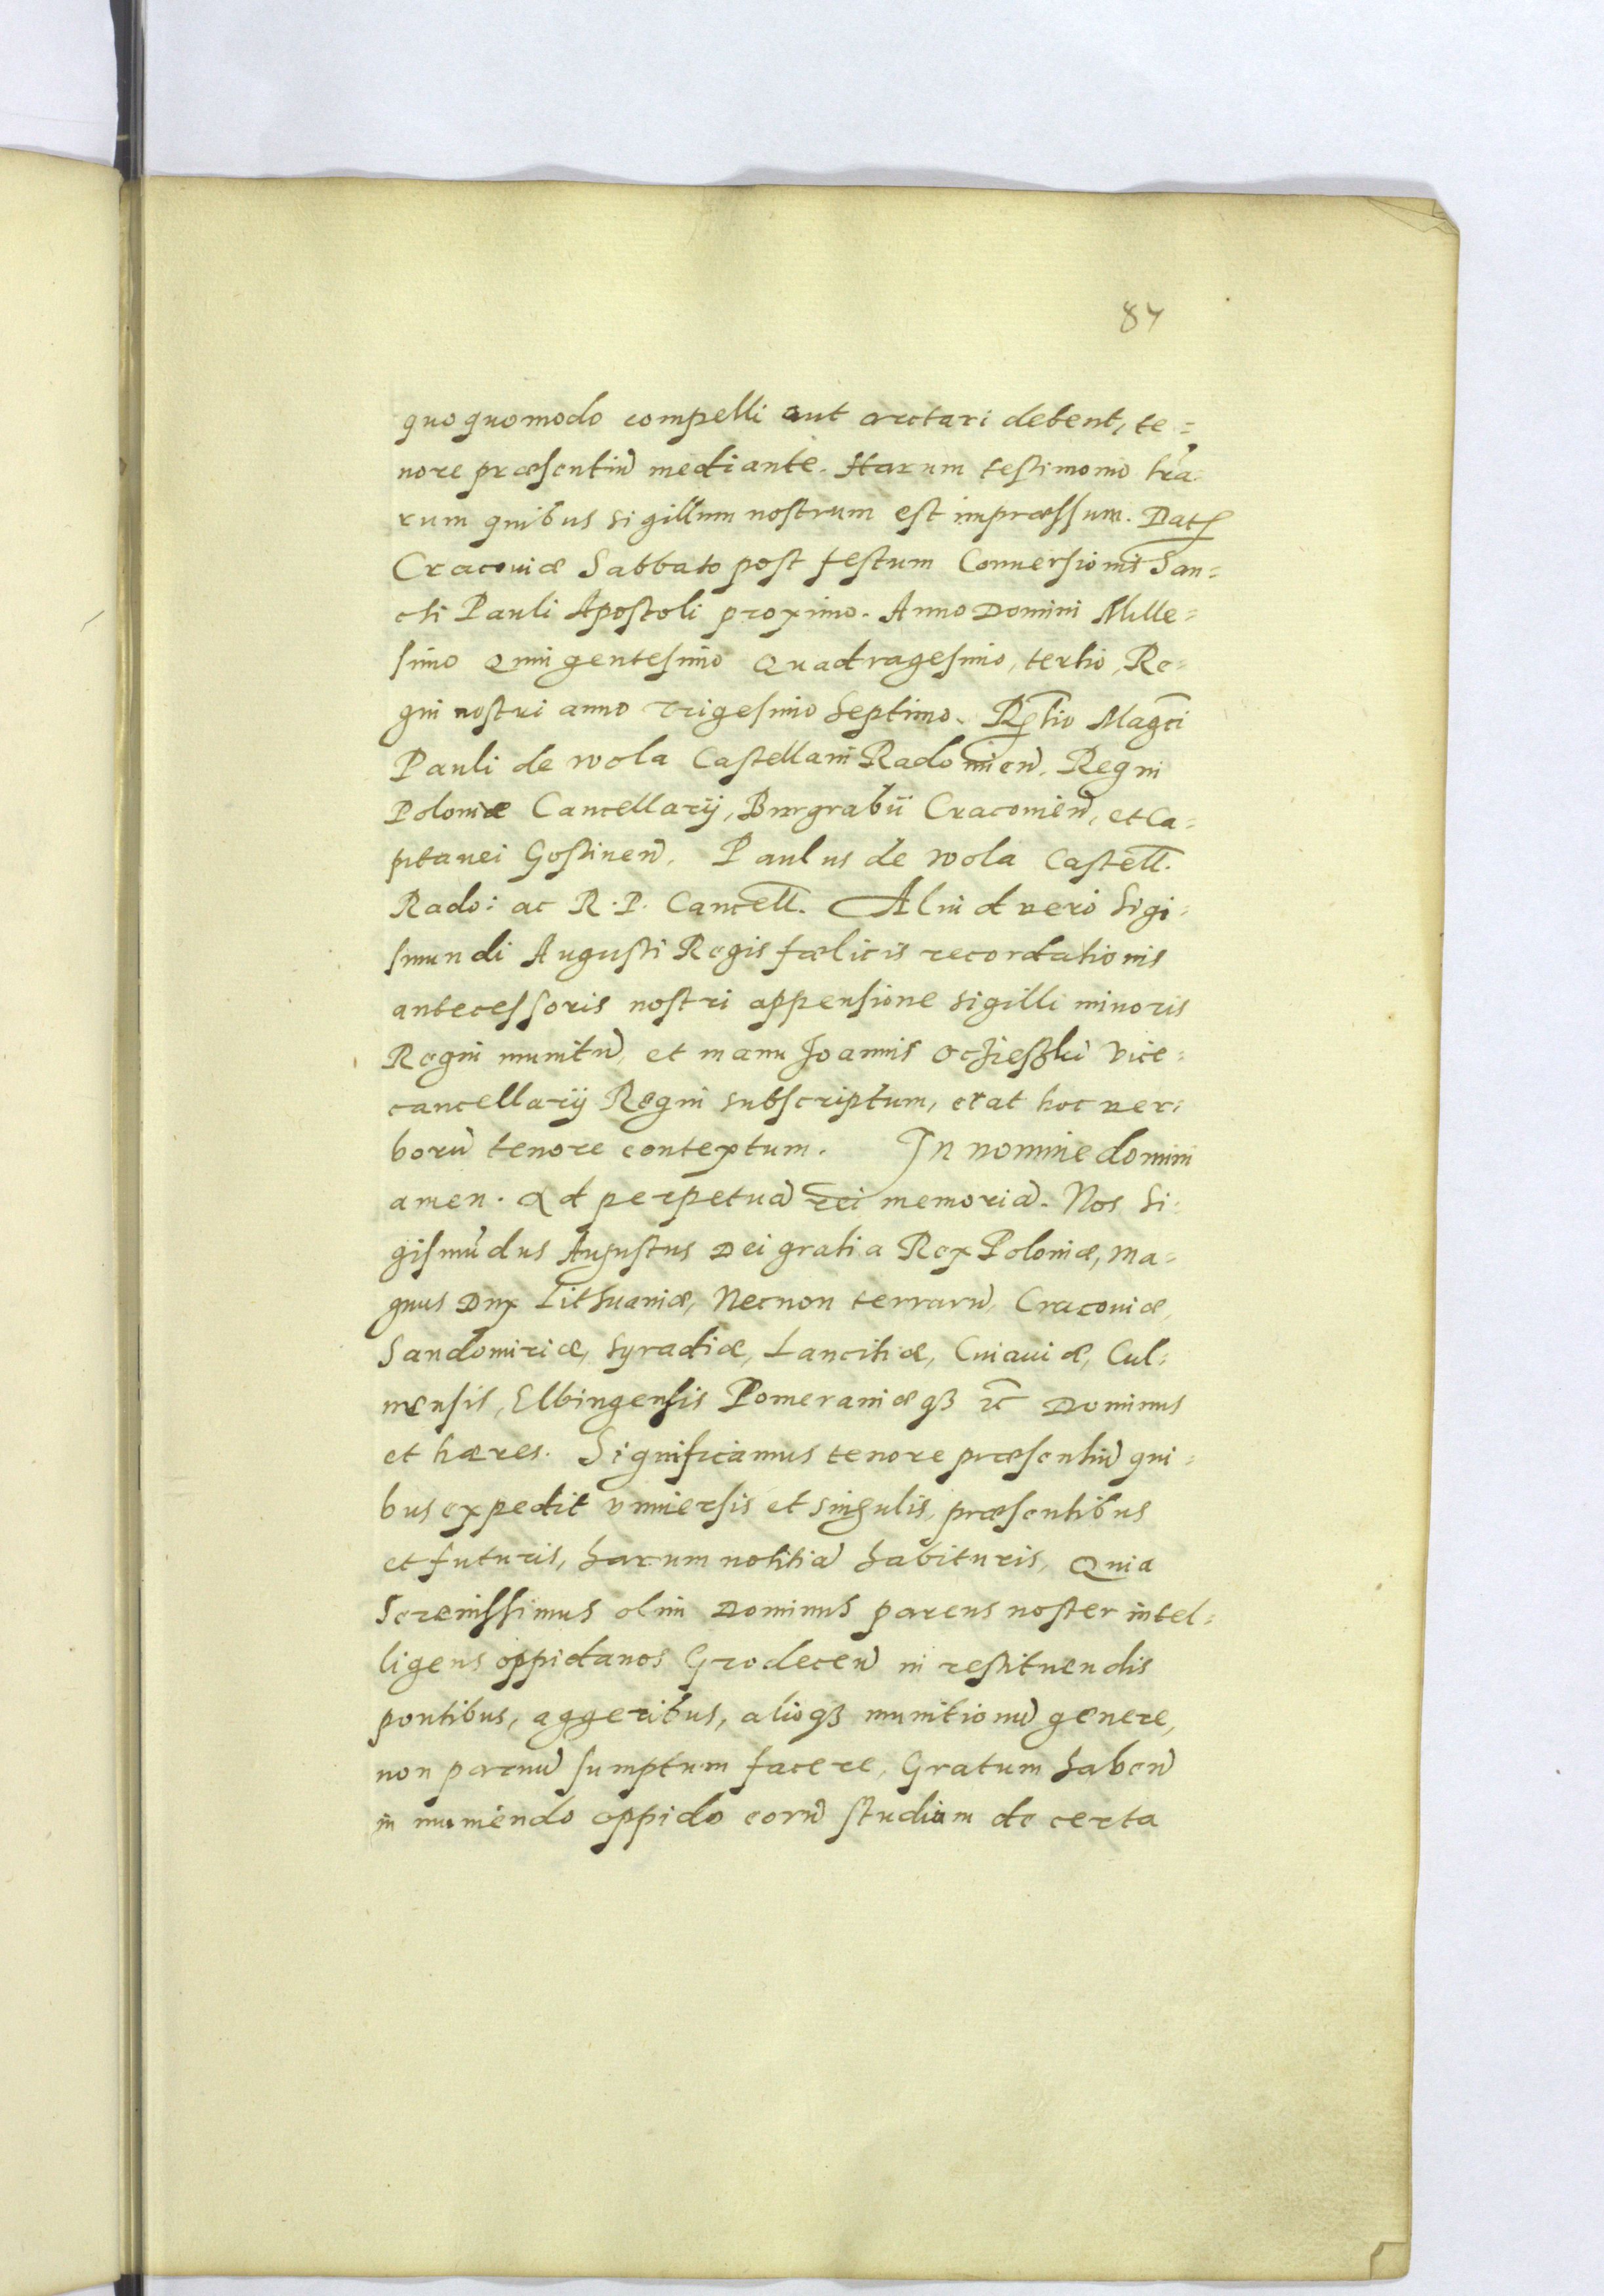 87
quoquomodo compelli aut arctari debent, te=
nore præsentiũ mediante. Harum testimonio lr̃a-
rum quibus sigillum nostrum est impræssum. Dat
Cracouiæ Sabbato post festum Conuersionis San=
cti Pauli Apostoli proximo. Anno Domini Mille=
simo Quingentesimo Quadragesimo, tertio, Re=
gni nostri anno Trigesimo Septimo. Rl̃tio Magc̃i
Pauli de Wola Castellani Radomien̄. Regni
Poloniæ Cancellarij, Burgrabii Cracouien̄, et Ca=
pitanei Gostinen̄. Paulus de Wola Castell̃.
Rado: ac R. P. Cancell̃. Aliud vero Sigi=
smundi Augusti Regis fælicis recordationis
antecessoris nostri appensione sigilli minoris
Regni munitũ, et manu Joannis Oczieszki Vice=
cancellarij Regni subscriptum, erat hoc ver=
borũ tenore contextum. In nomine domini
amen. Ad perpetuã rei memoriã. Nos Si=
gismũdus Augustus Dei gratia Rex Poloniæ, Ma=
gnus Dux Lithuaniæ, Necnon terrarũ, Cracouiæ,
Sandomiriæ, Syradiæ, Lancitiæ, Cuiauiæ, Cul=
mensis, Elbingensis Pomeraniæqȝ zc̃ Dominus
et hæres. Significamus tenore præsentiũ qui=
bus expedit vniuersis et singulis, præsentibus
et futuris, harum notitiã habituris, Quia
Serenissimus olim Dominus parens noster intel=
ligens oppidanos Grodecen̄ in restituendis
pontibus, aggeribus, alioqȝ munitionũ genere,
non paruũ sumptum facere, Gratum haben̄
in muniendo oppido eorũ studium de certa